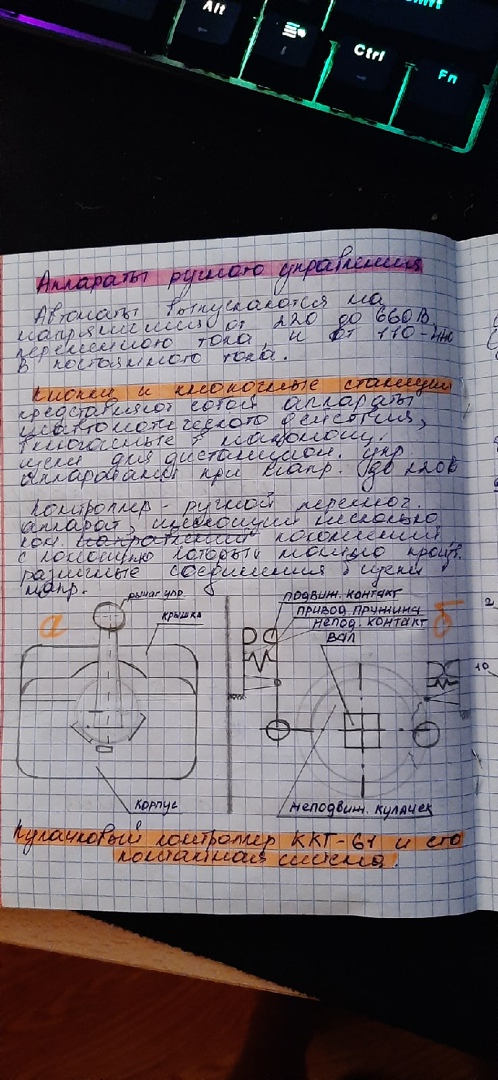 Shift
Alt
Ctrl
Fn
Аппараты ручного управления
Автоматы выпускаются на
напряжения от 220 до 660В
переменного тока, и от 110-440
В постоянного тока.
Кнопки и кнопочные станции
представляют собой аппараты
действия,
цепи для дистанцион. упр.
аппаратами при напр. до 220В
Контроллер - ручной переключ.
аппарат, имеющий несколько
кон. положений
с помощью которых можно произв.
различные соединения в цепи
напр.
а
рычаг упр.
крышка
корпус
подвиж. контакт
привод пружина
непод. контакт
б
вал
неподвиж. кулачек
Кулачковый контроллер ККТ-61 и его
контактная система.
2
10